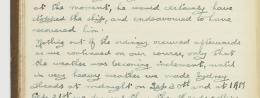 at the moment, he would certainly have
stopped the ship, and endeavoured to have
recovered him.
Nothing out of the ordinary occurred afterwards
as we continued on our course, only that
the weather was becoming inclement, until
in very heavy weather we made Sydney
Heads at midnight on Sep 20th and at 1 AM